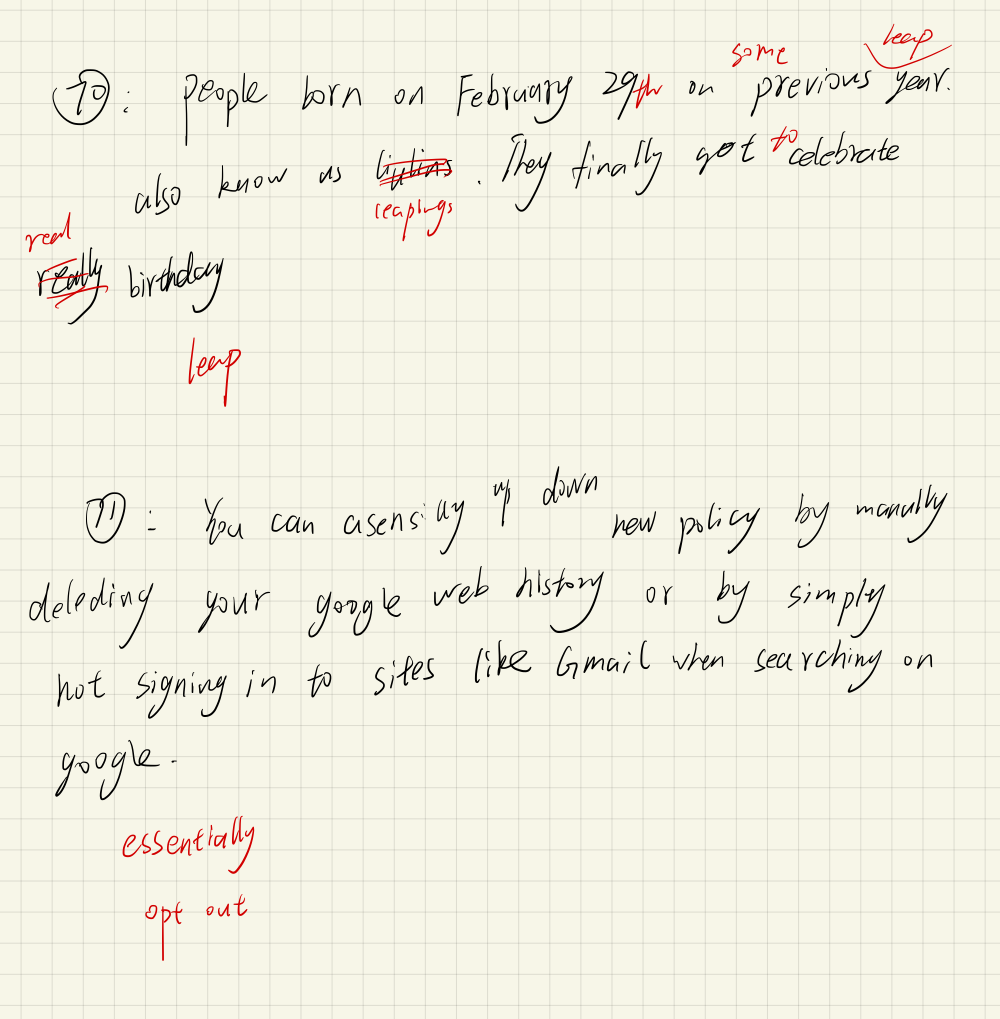 some leap
10: people born on February 29th on previous year.
also know as . They finally got to celebrate
leaplngs
real
really birthday
leap
11: You can asensiay up down new policy by manully
deleding your google web history or by simply
not signing in to sites like Gmail when searching on
google.
essentially
opt out